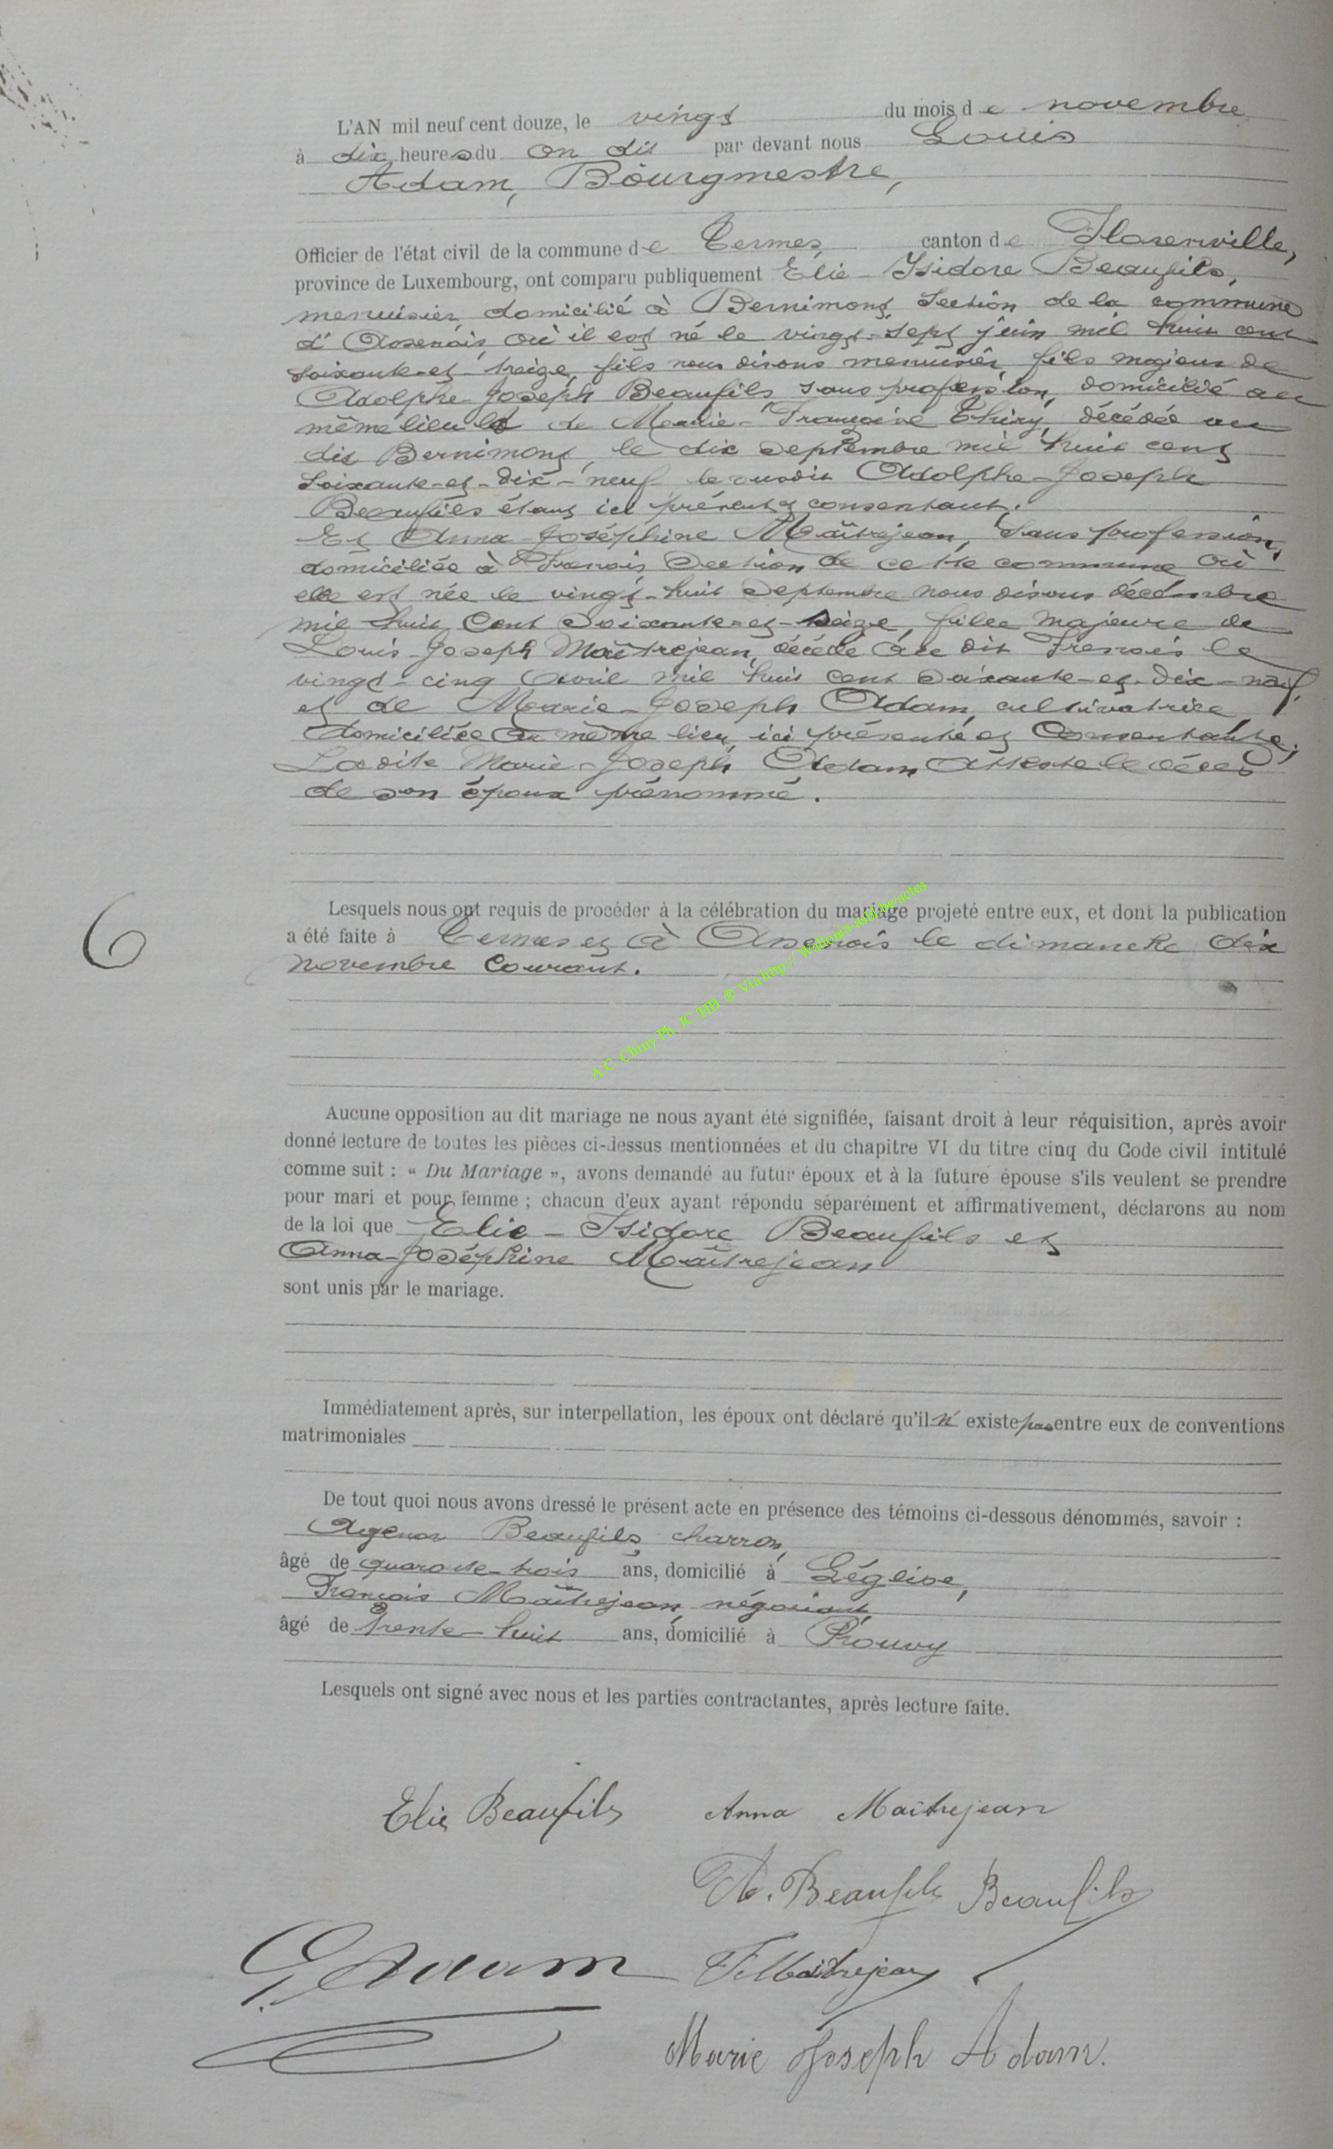 L'AN mil neuf cent douze, le vingt du mois de novembre
à dix heures du on dit par devant nous Louis
Adam, Bourgmestre,
Officier de l'état civil de la commune de Termes, canton de Florenville,
province de Luxembourg, ont comparu publiquement Elie-Isidore Beaufils,
menuisier, domicilié à Bernimont, Section de la commune
d'Assenois, où il est né le vingt-sept juin mil huit cent
soixante-et-treize, fils nous disons menuisier, fils majeur de
Adolphe-Joseph Beaufils, sans profession, domicilié au
même lieu et de Marie-Françoise Thiry, décédée au
dit Bernimont, le dix septembre mil huit cent
soixante-et-dix-neuf le susdit Adolphe-Joseph
Beaufils étant ici présent et consentant.
Et Anna-Joséphine Maîtrejean, sans profession,
domiciliée à Frenois Section de cette commune où
elle est née le vingt-huit septembre nous disons décembre
mil huit cent soixante-et-seize, fille majeure de
Louis-Joseph Maîtrejean, décédé au dit Frenois le
vingt-cinq avril mil huit cent soixante-et-dix-neuf,
et de Marie-Joseph Adam, cultivatrice,
domiciliée au même lieu, ici présente et consentante,
Ladite Marie-Joseph Adam atteste le décès
de son époux prénommé.
6
Lesquels nous ont requis de procéder à la célébration du mariage projeté entre eux, et dont la publication
a été faite à Termes et à Assenois le dimanche dix
novembre courant.
Aucune opposition au dit mariage ne nous ayant été signifiée, faisant droit à leur réquisition, après avoir
donné lecture de toutes les pièces ci-dessus mentionnées et du chapitre VI du titre cinq du Code civil intitulé
comme suit : « Du Mariage », avons demandé au futur époux et à la future épouse s'ils veulent se prendre
pour mari et pour femme ; chacun d'eux ayant répondu séparément et affirmativement, déclarons au nom
de la loi que Elie-Isidore Beaufils et
Anna-Joséphine Maîtrejean
sont unis par le mariage.
Immédiatement après, sur interpellation, les époux ont déclaré qu'il n'existe pas entre eux de conventions
matrimoniales
De tout quoi nous avons dressé le présent acte en présence des témoins ci-dessous dénommés, savoir :
Agenor Beaufils, charron,
âgé de quarante-trois ans, domicilié à Léglise,
François Maîtrejean, négociant,
âgé de trente-huit ans, domicilié à Prouvy
Lesquels ont signé avec nous et les parties contractantes, après lecture faite.
Elie Beaufils Anna Maitrejean
A. Beaufils Beaufils
Adam F. Maitrejean
Marie Joseph Adam.